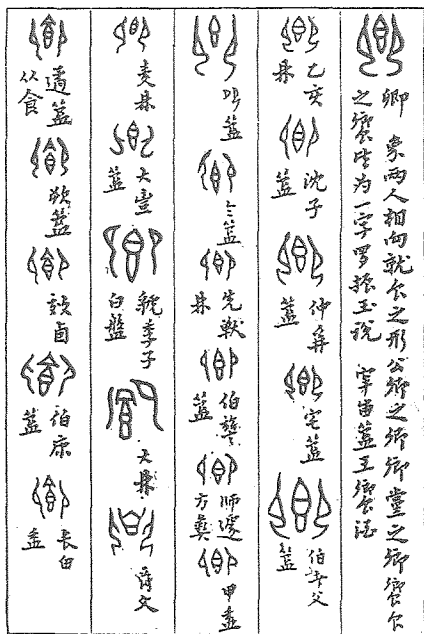 卿 象兩人相向就食之形公卿之卿鄉黨之鄉饗食
之饗皆為一字羅振玉說 宰甶簋王饗酒
乙亥鼎 沈子簋 仲爯簋 宅簋 伯者父簋
簋 令簋 先獸鼎 伯簋 師遽方彝 甲盉
麦鼎 大豐簋 虢季子白盤 大鼎 文
遹簋从食 簋 效卣 伯康簋 長甶盉